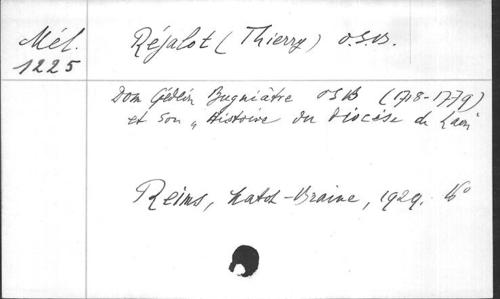 Mél.
1225
Réjalot (Thierry) O.S.B.
Dom Gédéon Bugniâtre OSB (1718-1779)
et son „Histoire du Diocèse de Laon"
Reims, Matot-Braine, 1929. 16°